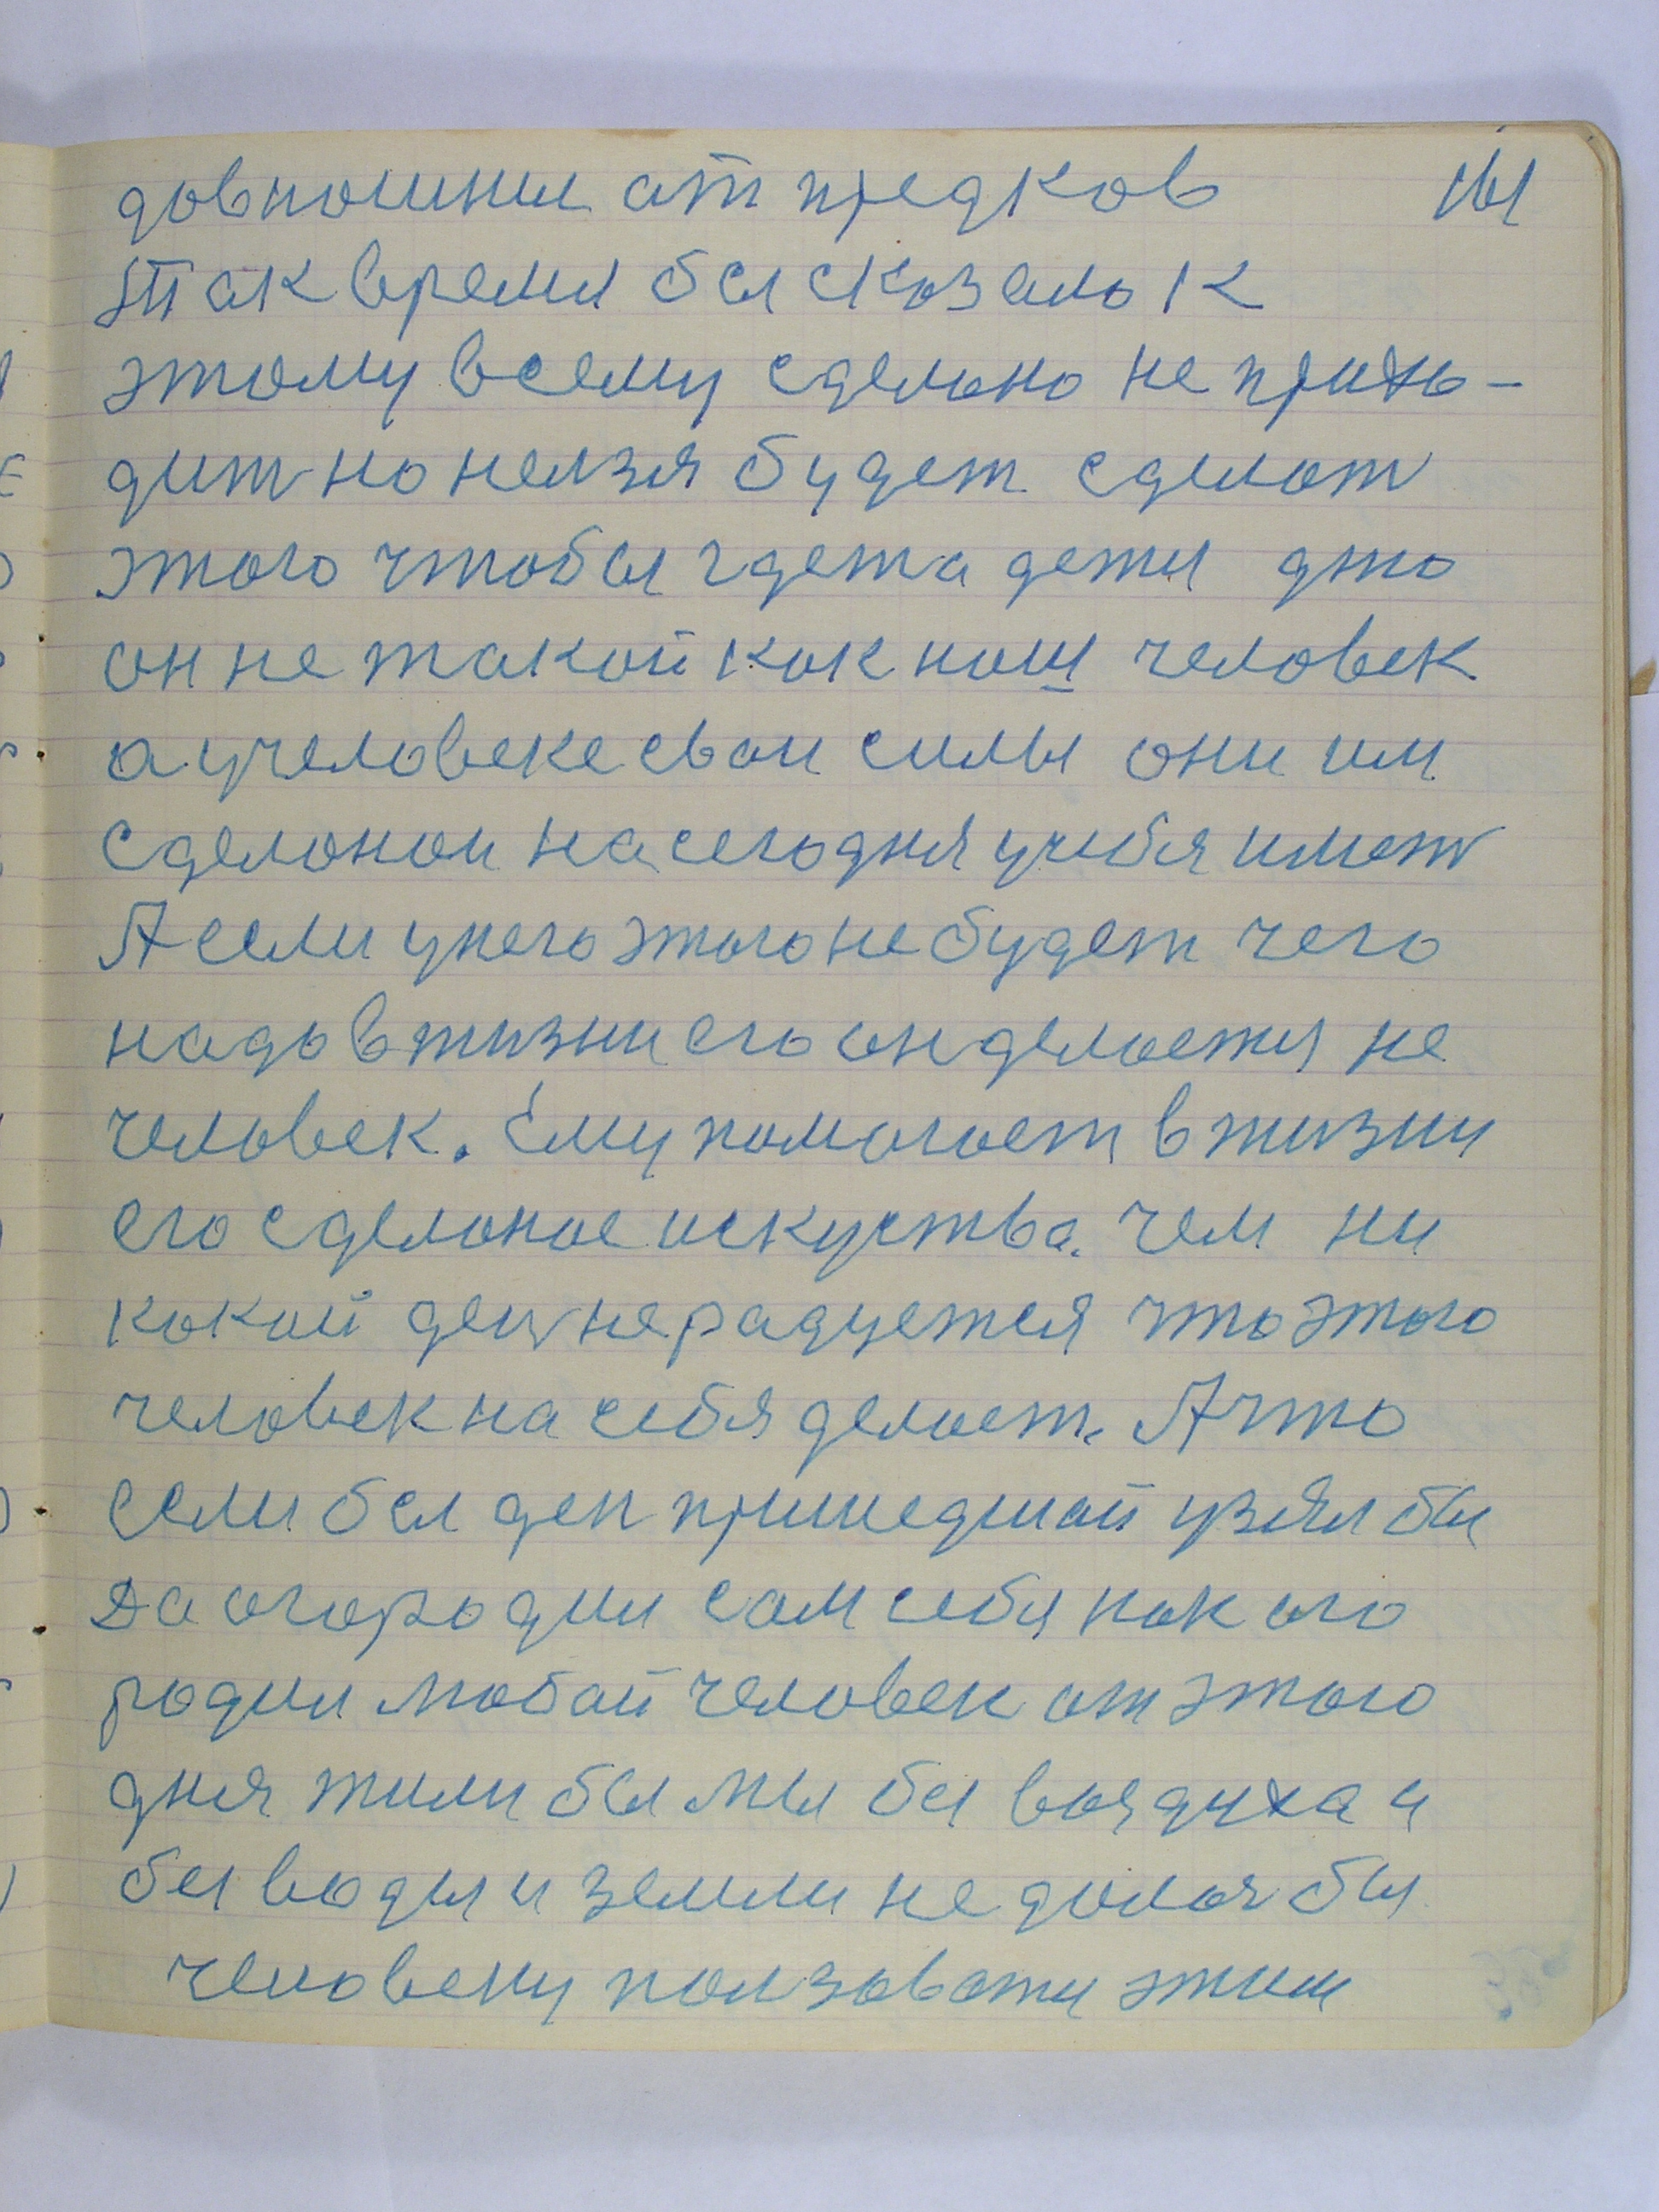 довпошнил ат предков 161
Так время бы сказало к
этому всему сделоно не прихо-
дит но нелзя будет сделат
этого чтобы гдета дети дто
он не такой как нош человек
а у человеке сваи силы они им
сделонои на сегодня у чебя имет
А если у него этого не будет чего
надо в жизни его он делоетя не
человек. Ему помогоет в жизни
его сделоное искуства. чем ни
кокой ден не радуется что этого
человек на себя делоет. А что
если бы ден пришедшай узял бы
да огородил сом себя как ого
родил любай человек от этого
дня жили бы мы бы воздуха и
бы воды и земли не долоя бы
человеку ползовоти этим